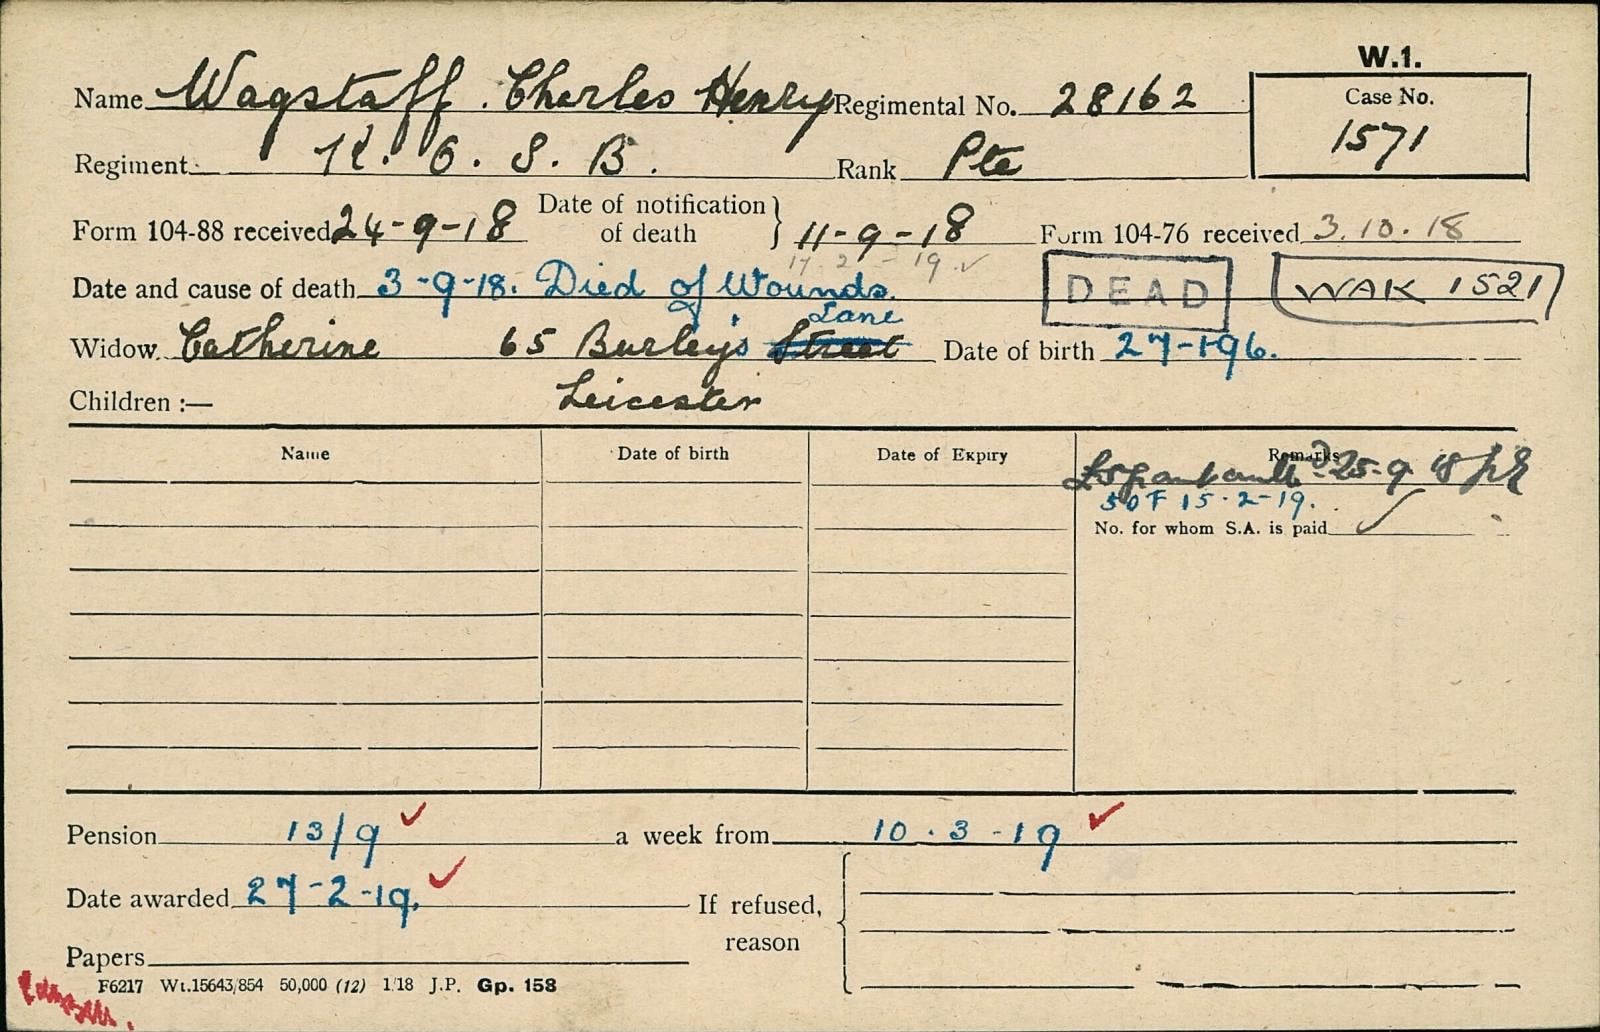 W.1.
Name Wagstaff. Charles Henry Regimental No. 28162 Case No.
1571
Regiment K. O. S. B. Rank Pte
Form 104-88 received 24-9-18 Date of notification of death } 11-9-18 Form 104-76 received 3.10.18
17 2 - 19
Date and cause of death 3-9-18. Died of Wounds. DEAD WAK 1521
Lane
Widow Catherine 65 Burley's Street Date of birth 27-1-96.
Leicester
Children :—
Name Date of birth Date of Expiry Remarks
25-9-18
SOF 15-2-19.
No. for whom S.A. is paid
Pension 13/9 a week from 10.3-19
Date awarded 27-2-19. If refused, reason
Papers
F6217 Wt.15643/854 50,000 (12) 1/18 J.P. Gp. 158